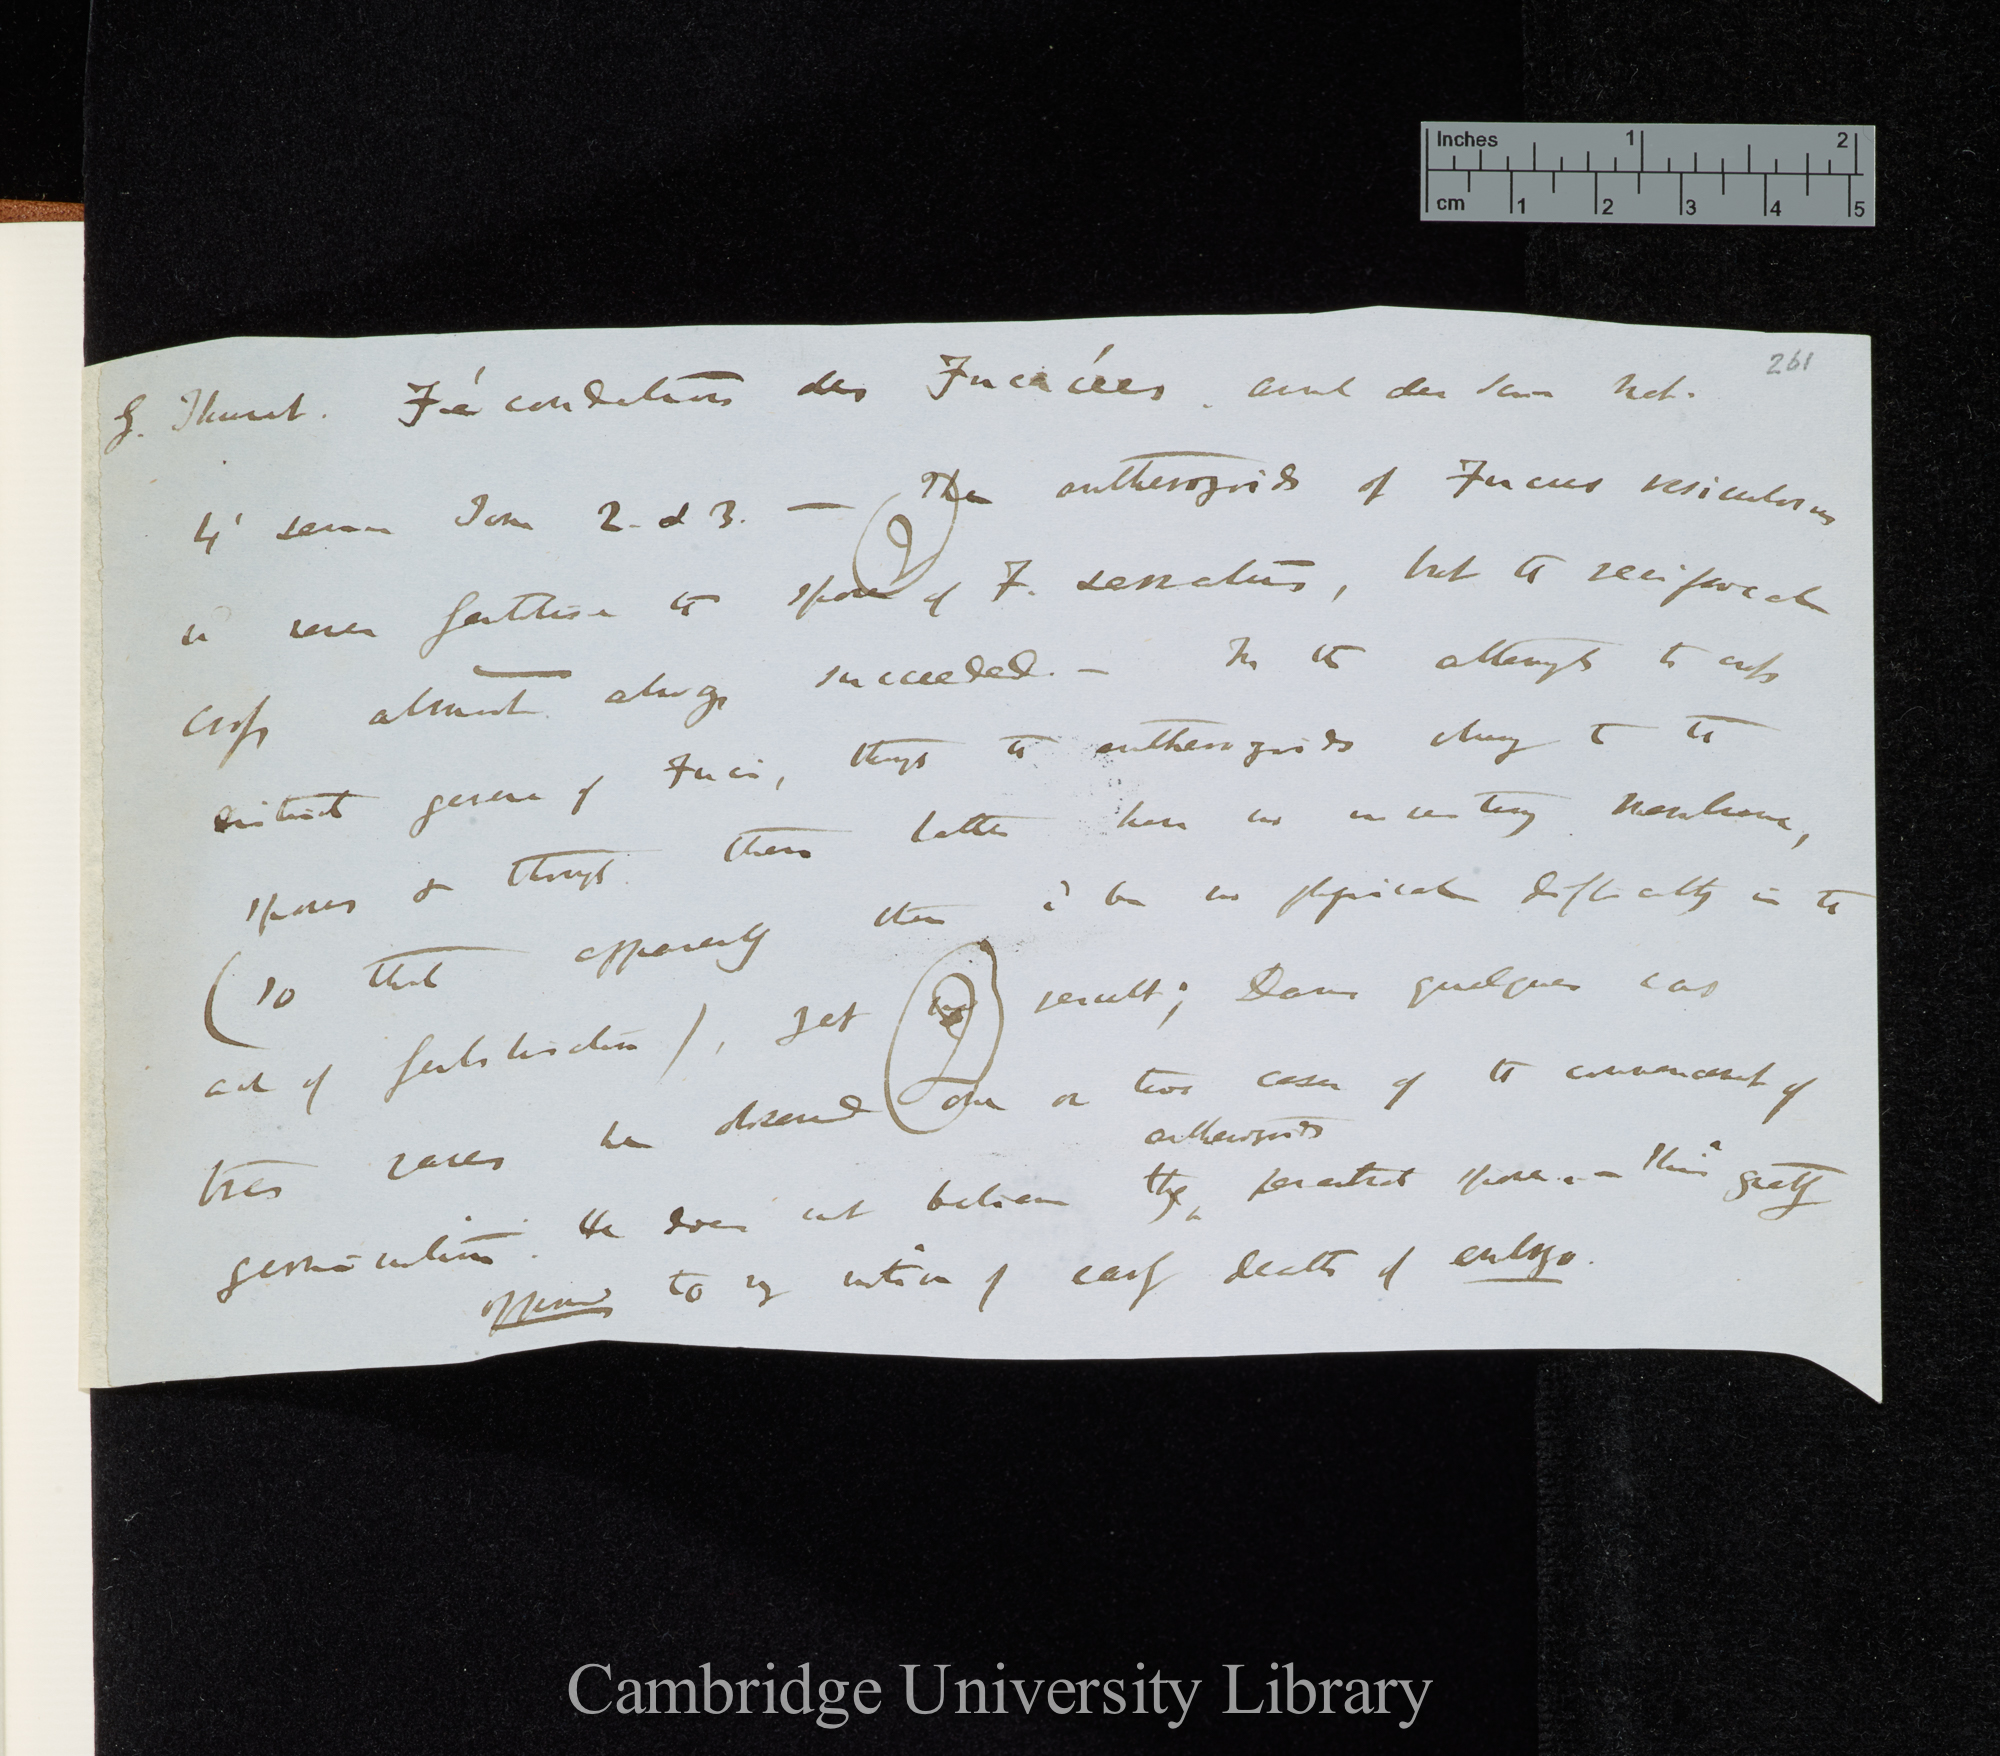 Inches 1 2
cm 1 2 3 4 5
261
G. Thuret. Fécondation des Fucacées. annal des Scien Nat.
4' series Tom 2. & 3. — The antherozoids of Fucus vesiculosus
never fertilise the spores of F. serratus, but the reciprocal
cross almost always succeeded. — In the attempts to cross
distinct genera of Fuci, though the antherozoids clung to the
spores & though these latter have no investing membrane,
(so that apparently there be no physical difficulty in the
act of fertilisation), yet no result; Dans quelques cas
très rares he observed one or two cases of the commencement of
antherozoids
germination. He does not believe they penetrated spore. — This greatly
opposed to my notion of early death of embryo.
Cambridge University Library